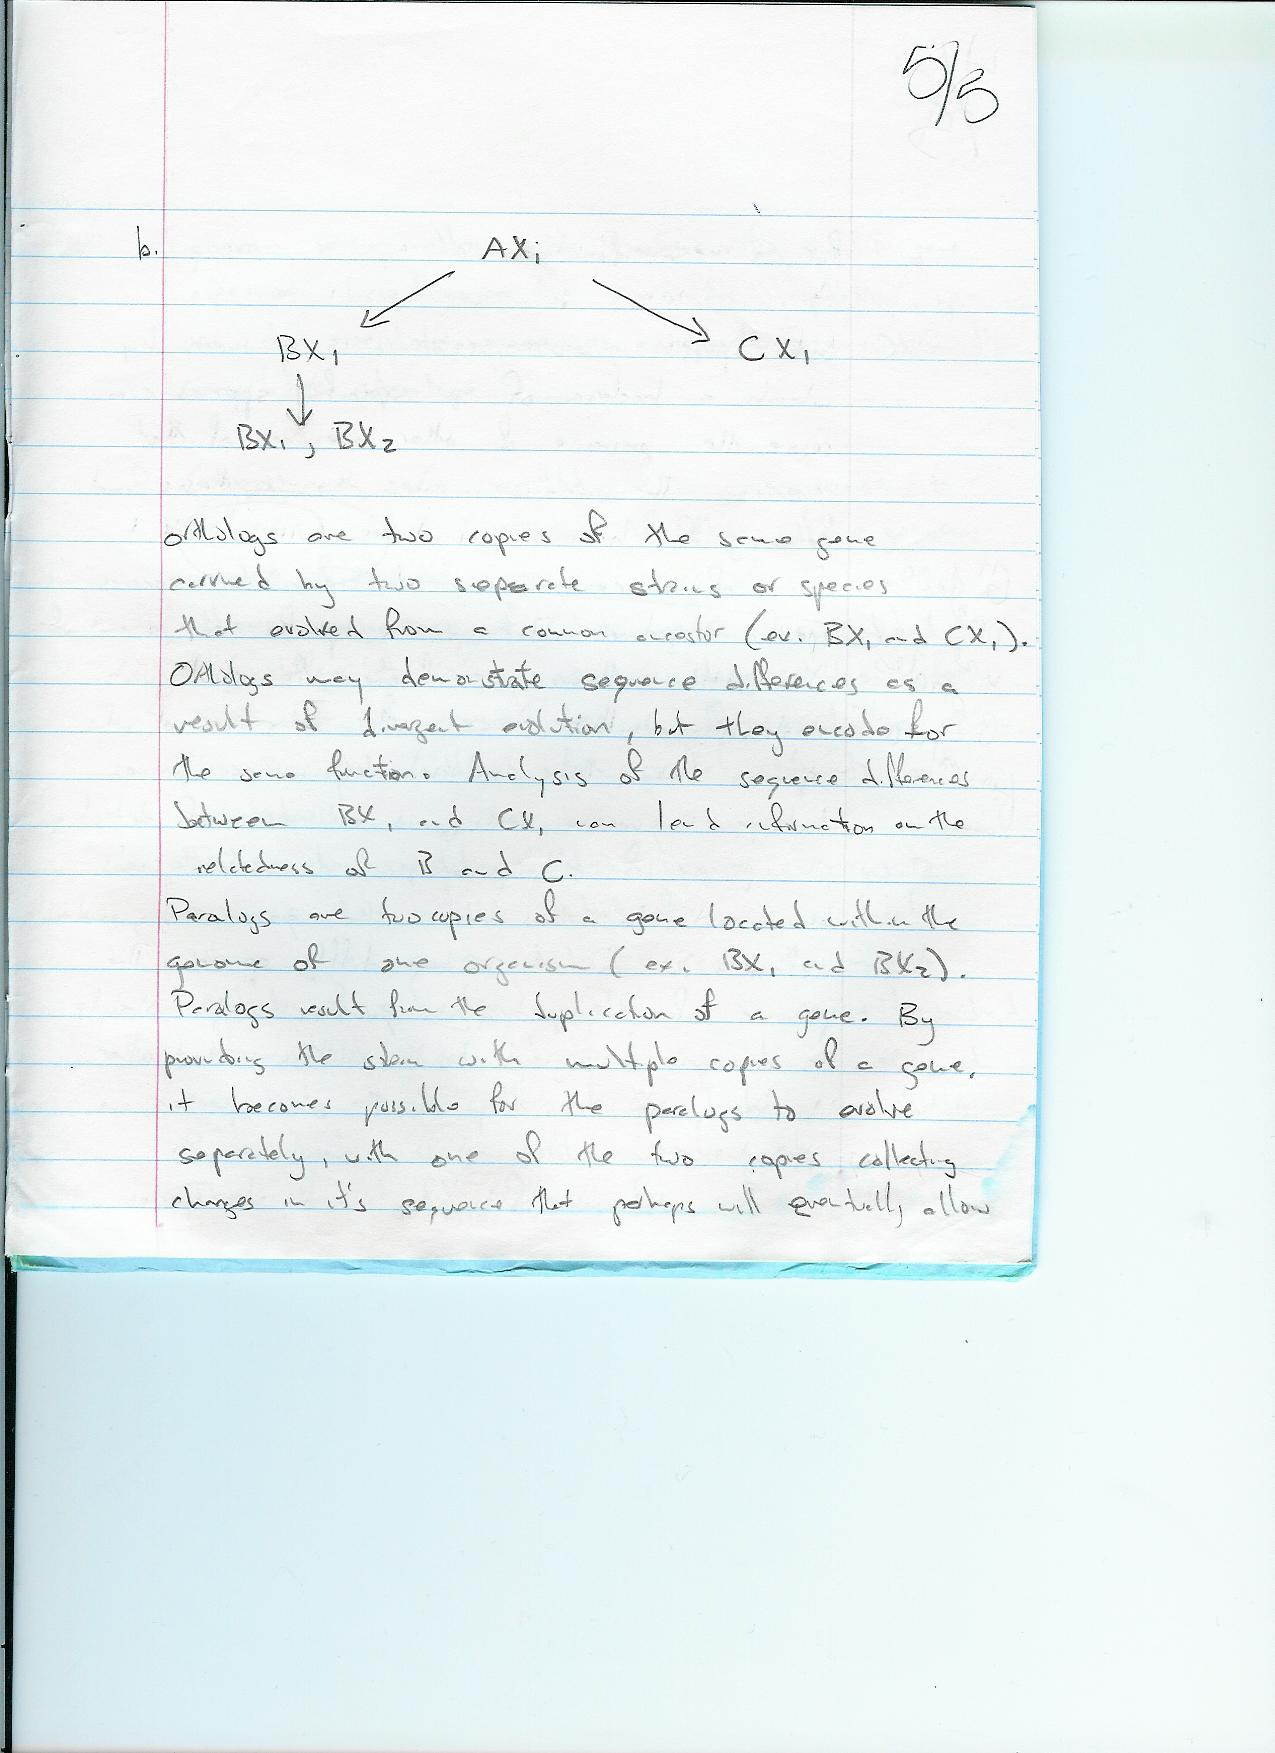 5/5
b. AX1
BX1 CX1
BX1, BX2
orthologs are two copies of the same gene
carried by two separate strains or species
that evolved from a common ancestor (ex. BX1 and CX1).
Orthologs may demonstrate sequence differences as a
result of divergent evolution, but they encode for
the same function. Analysis of the sequence differences
between BX1 and CX1 can lend information on the
relatedness of B and C.
Paralogs are two copies of a gene located within the
genome of one organism (ex. BX1 and BX2).
Paralogs result from the duplication of a gene. By
providing the strain with multiple copies of a gene,
it becomes possible for the paralogs to evolve
separately, with one of the two copies collecting
changes in it's sequence that perhaps will eventually allow